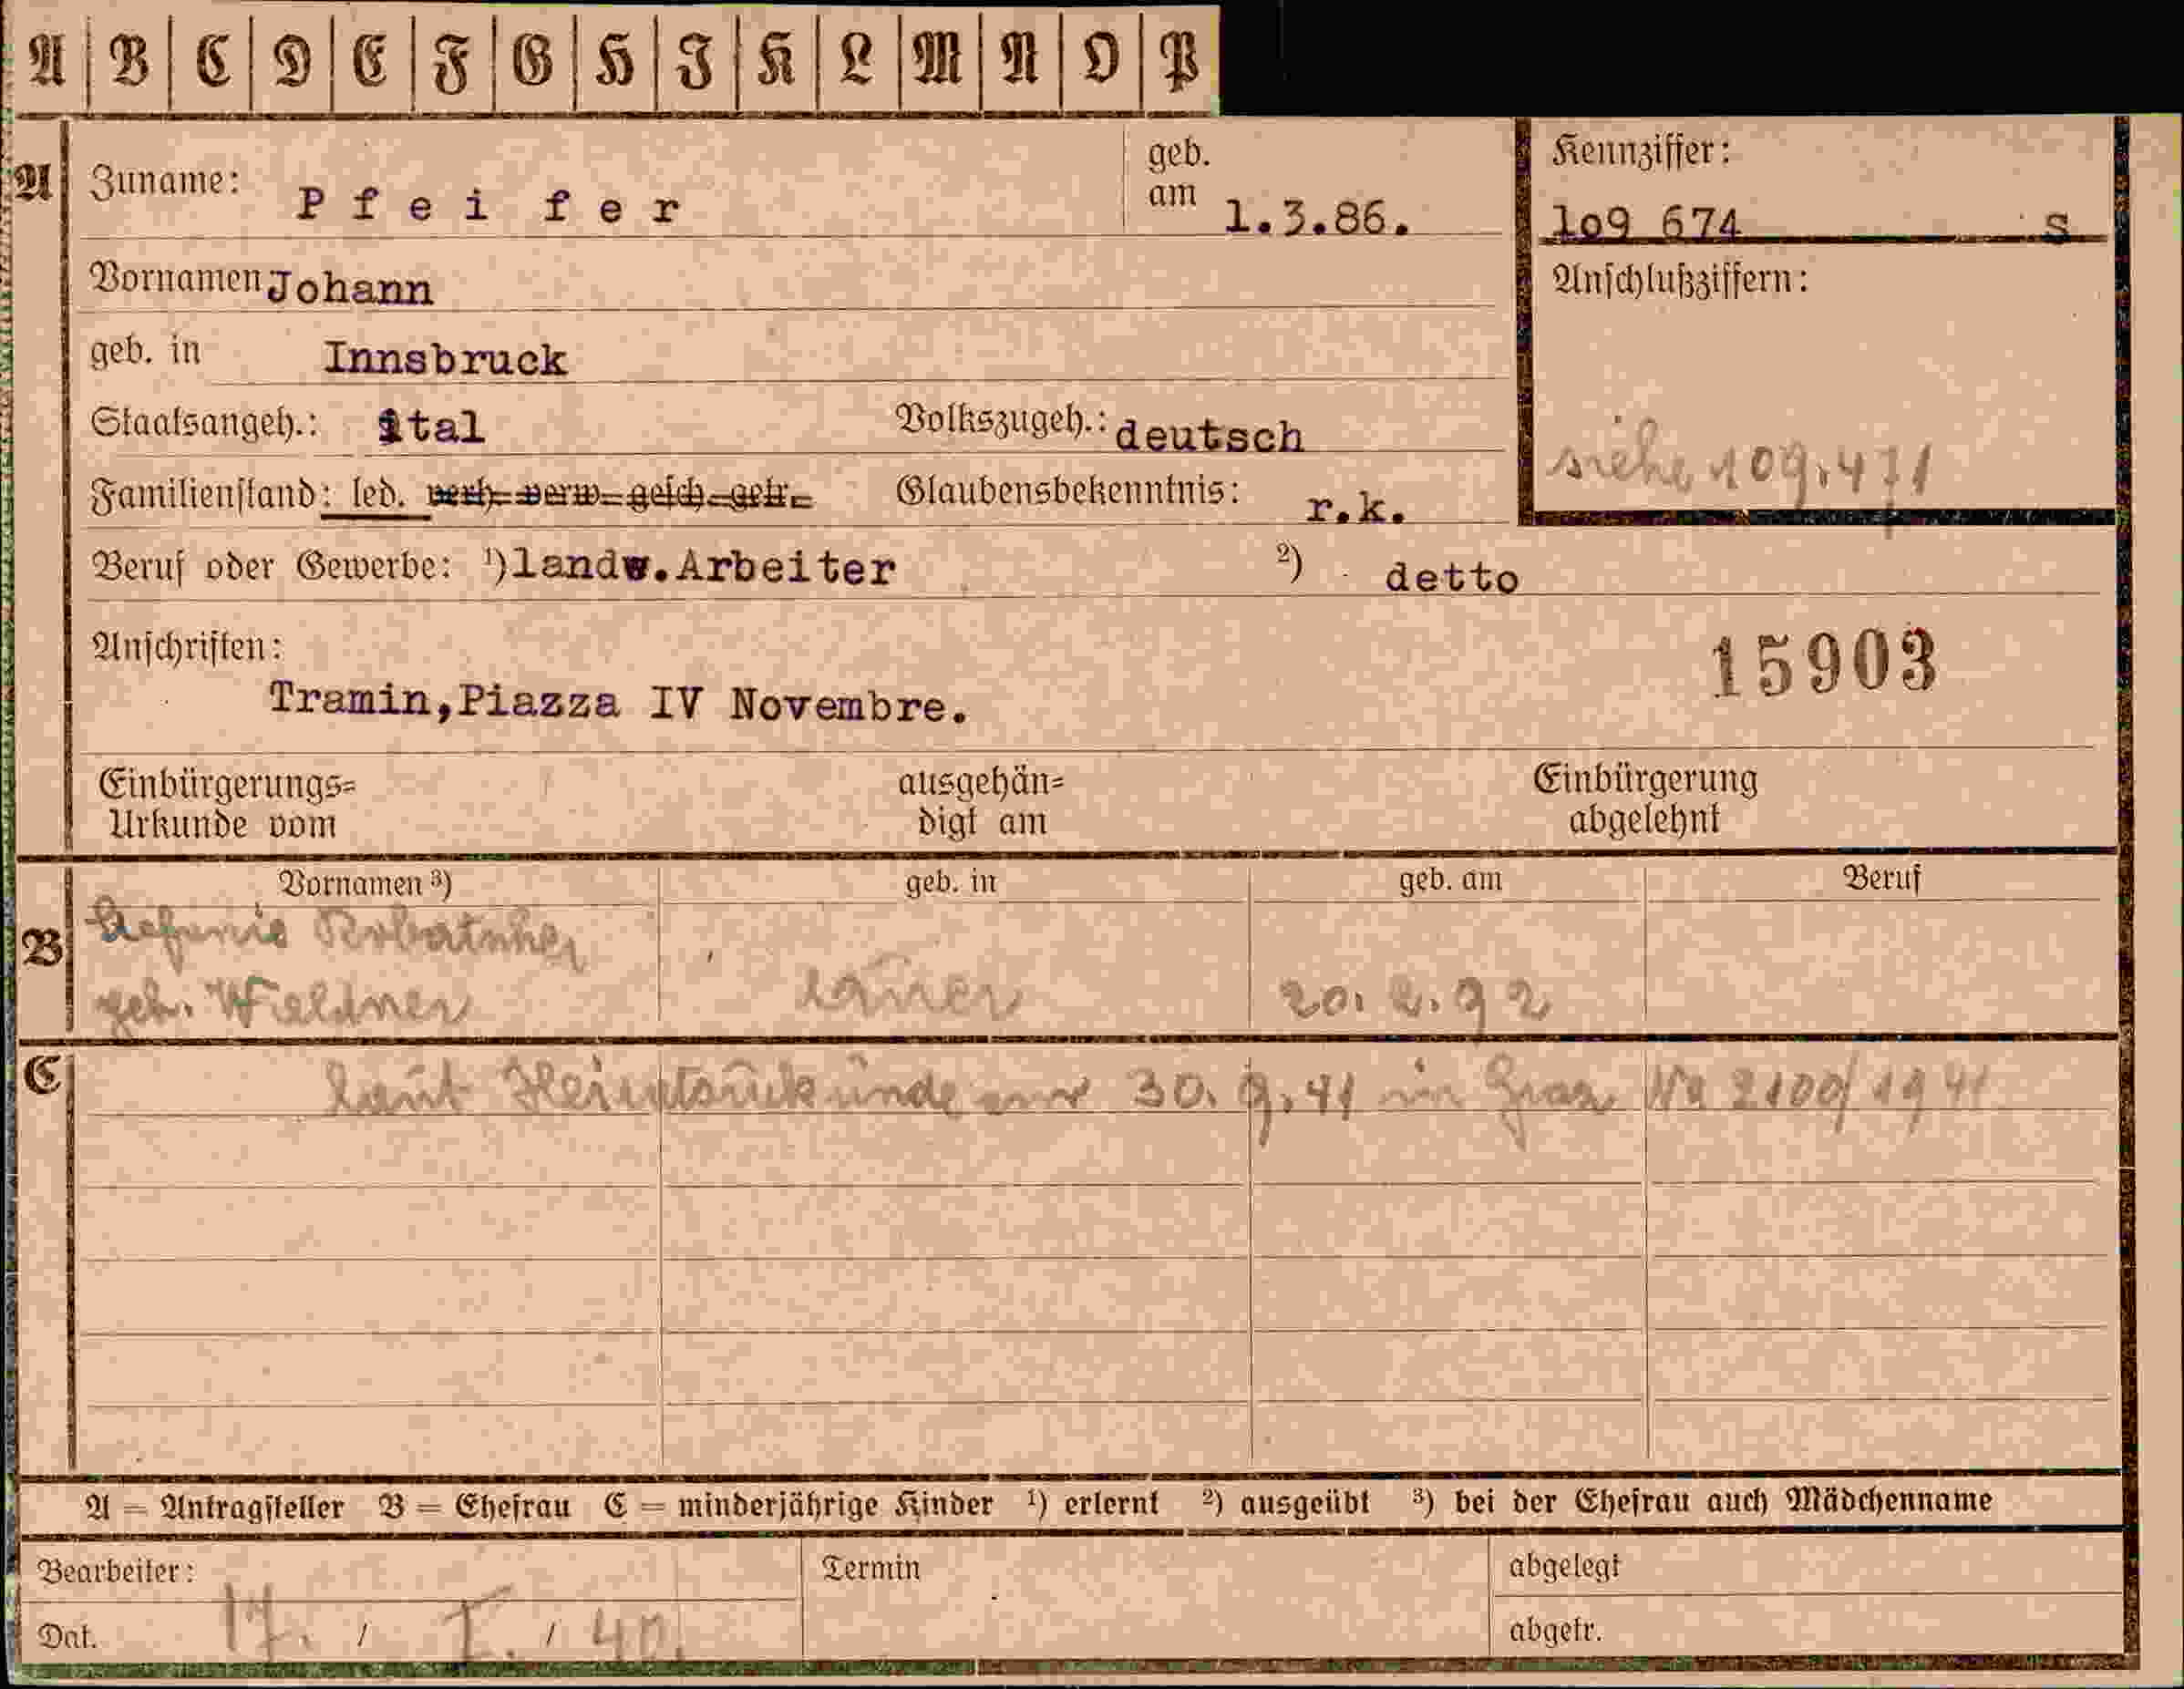 A B C D E F G H I K L M N O P
A Zuname: Pfeifer geb. am 1.3.86. Kennziffer: 1o9 674 s
Vornamen Johann Anschlußziffern:
geb. in Innsbruck
Staatsangeh.: ital Volkszugeh.: deutsch siehe 109.471
Familienstand: led. verh. verw. gesch. getr. Glaubensbekenntnis: r.k.
Beruf oder Gewerbe: ¹) landw.Arbeiter ²) detto
Anschriften: 15903
Tramin,Piazza IV Novembre.
Einbürgerungs= ausgehän= Einbürgerung
Urkunde vom digt am abgelehnt
Vornamen ³) geb. in geb. am Beruf
B Stefanie
geb. 20. 2. 92
C laut Heiratsurkunde 30. 9. 41 in Graz No 2100/1941
A = Antragsteller B = Ehefrau C = minderjährige Kinder ¹) erlernt ²) ausgeübt ³) bei der Ehefrau auch Mädchenname
Bearbeiter: Termin abgelegt
Dat. 17. / I. / 40. abgetr.